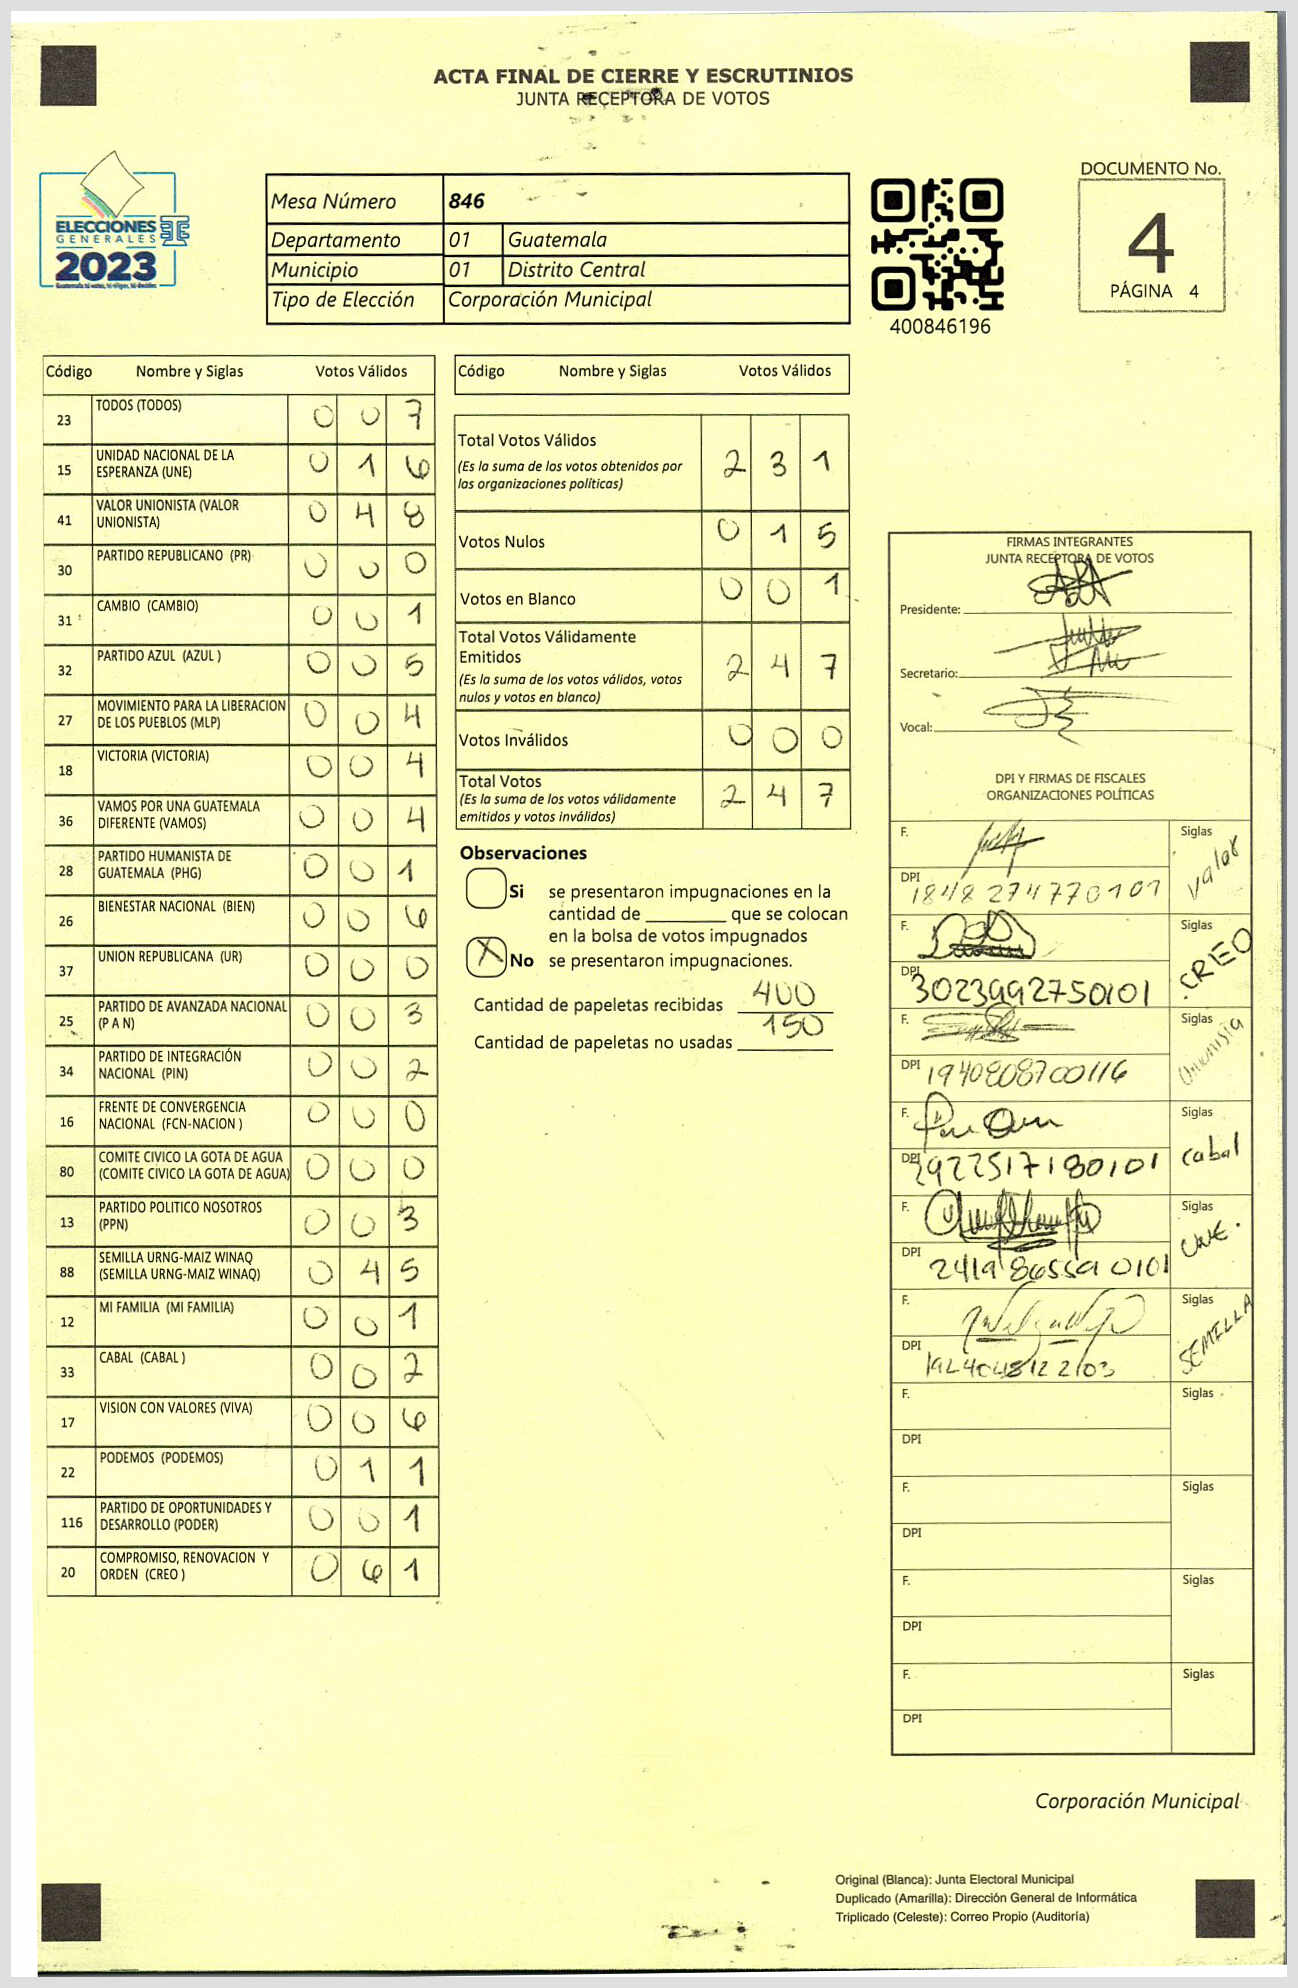 ACTA FINAL DE CIERRE Y ESCRUTINIOS
JUNTA RECEPTORA DE VOTOS
ELECCIONES
GENERALES
2023
Guatemala tú votas, tú eliges, tú decides
Mesa Número 846
Departamento 01 Guatemala
Municipio 01 Distrito Central
Tipo de Elección Corporación Municipal
400846196
DOCUMENTO No.
4
PÁGINA 4
Código Nombre y Siglas Votos Válidos
23 TODOS (TODOS) 0 0 7
15 UNIDAD NACIONAL DE LA ESPERANZA (UNE) 0 1 6
41 VALOR UNIONISTA (VALOR UNIONISTA) 0 4 8
30 PARTIDO REPUBLICANO (PR) 0 0 0
31 CAMBIO (CAMBIO) 0 0 1
32 PARTIDO AZUL (AZUL ) 0 0 5
27 MOVIMIENTO PARA LA LIBERACION DE LOS PUEBLOS (MLP) 0 0 4
18 VICTORIA (VICTORIA) 0 0 4
36 VAMOS POR UNA GUATEMALA DIFERENTE (VAMOS) 0 0 4
28 PARTIDO HUMANISTA DE GUATEMALA (PHG) 0 0 1
26 BIENESTAR NACIONAL (BIEN) 0 0 6
37 UNION REPUBLICANA (UR) 0 0 0
25 PARTIDO DE AVANZADA NACIONAL (P A N) 0 0 3
34 PARTIDO DE INTEGRACIÓN NACIONAL (PIN) 0 0 2
16 FRENTE DE CONVERGENCIA NACIONAL (FCN-NACION ) 0 0 0
80 COMITE CIVICO LA GOTA DE AGUA (COMITE CIVICO LA GOTA DE AGUA) 0 0 0
13 PARTIDO POLITICO NOSOTROS (PPN) 0 0 3
88 SEMILLA URNG-MAIZ WINAQ (SEMILLA URNG-MAIZ WINAQ) 0 4 5
12 MI FAMILIA (MI FAMILIA) 0 0 1
33 CABAL (CABAL ) 0 0 2
17 VISION CON VALORES (VIVA) 0 0 6
22 PODEMOS (PODEMOS) 0 1 1
116 PARTIDO DE OPORTUNIDADES Y DESARROLLO (PODER) 0 0 1
20 COMPROMISO, RENOVACION Y ORDEN (CREO ) 0 6 1
Código Nombre y Siglas Votos Válidos
Total Votos Válidos 2 3 1
(Es la suma de los votos obtenidos por
las organizaciones políticas)
Votos Nulos 0 1 5
Votos en Blanco 0 0 1
Total Votos Válidamente
Emitidos 2 4 7
(Es la suma de los votos válidos, votos
nulos y votos en blanco)
Votos Inválidos 0 0 0
Total Votos 2 4 7
(Es la suma de los votos válidamente
emitidos y votos inválidos)
Observaciones
Si se presentaron impugnaciones en la
cantidad de ________ que se colocan
en la bolsa de votos impugnados
X No se presentaron impugnaciones.
Cantidad de papeletas recibidas 400
Cantidad de papeletas no usadas 150
FIRMAS INTEGRANTES
JUNTA RECEPTORA DE VOTOS
Presidente:
Secretario:
Vocal:
DPI Y FIRMAS DE FISCALES
ORGANIZACIONES POLÍTICAS
F. Siglas valor
DPI 1848 274770101
F. Siglas CREO
DPI 3023992750101
F. Siglas Unionista
DPI 1940808700116
F. Siglas cabal
DPI 2922517180101
F. Siglas UNE.
DPI 2419865590101
F. Siglas SEMILLA
DPI
F. Siglas
DPI
F. Siglas
DPI
F. Siglas
DPI
F. Siglas
DPI
Corporación Municipal
Original (Blanca): Junta Electoral Municipal
Duplicado (Amarilla): Dirección General de Informática
Triplicado (Celeste): Correo Propio (Auditoría)